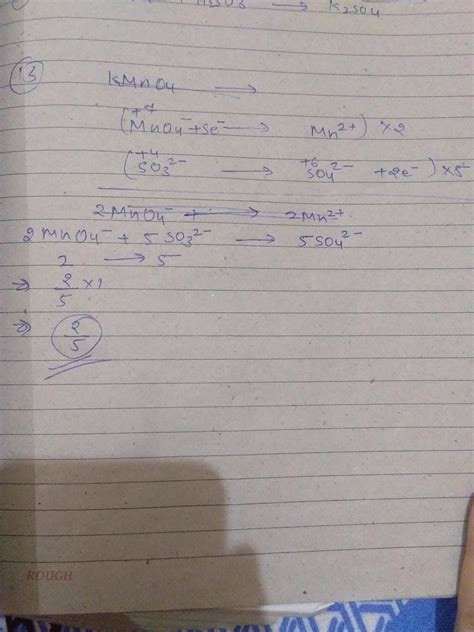 HSO3 → K2SO4
13
KMnO4 →
+7
(MnO4⁻ + 5e⁻ → Mn²⁺) ×2
+4 +6
(SO3²⁻ → SO4²⁻ + 2e⁻) ×5
2MnO4⁻ + → 2Mn²⁺
2MnO4⁻ + 5SO3²⁻ → 5SO4²⁻
2 → 5
⇒ 2/5 ×1
⇒ 2/5
ROUGH